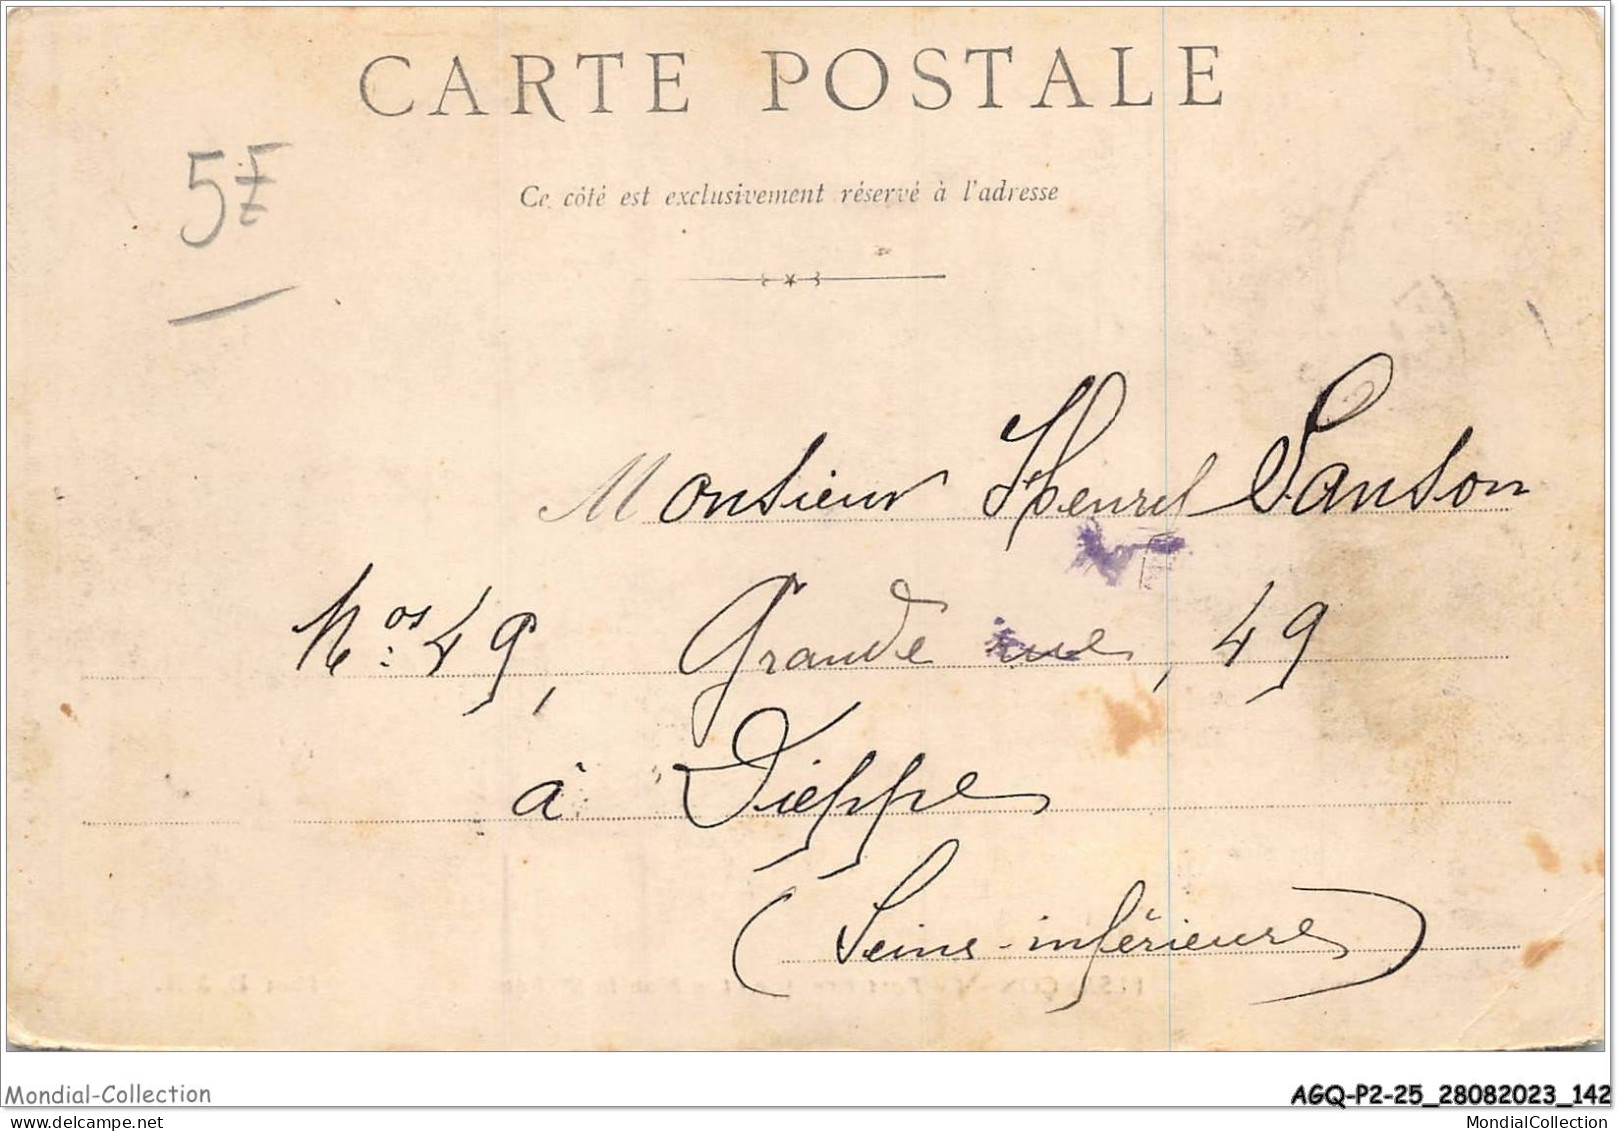 CARTE POSTALE
5F
Ce côté est exclusivement réservé à l'adresse
Monsieur Henri Sanson
Nos: 49, Grande rue, 49
à Dieppe
(Seine-inférieure)
Mondial-Collection
AGQ-P2-25_28082023_142
MondialCollection